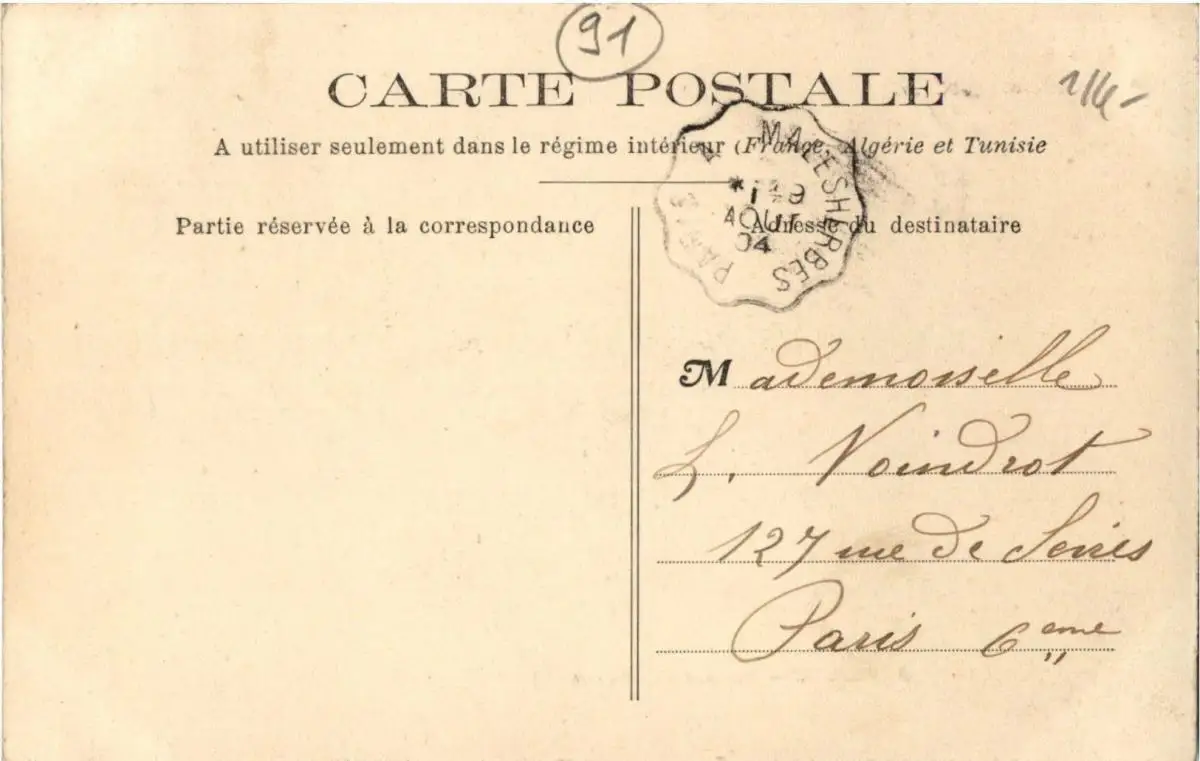 91
CARTE POSTALE
A utiliser seulement dans le régime intérieur (France, Algérie et Tunisie
PARIS A MALESHERBES
AOUT
04
Partie réservée à la correspondance
Adresse du destinataire
Mademoiselle
L. Voindrot
127 rue de Sèvres
Paris 6eme